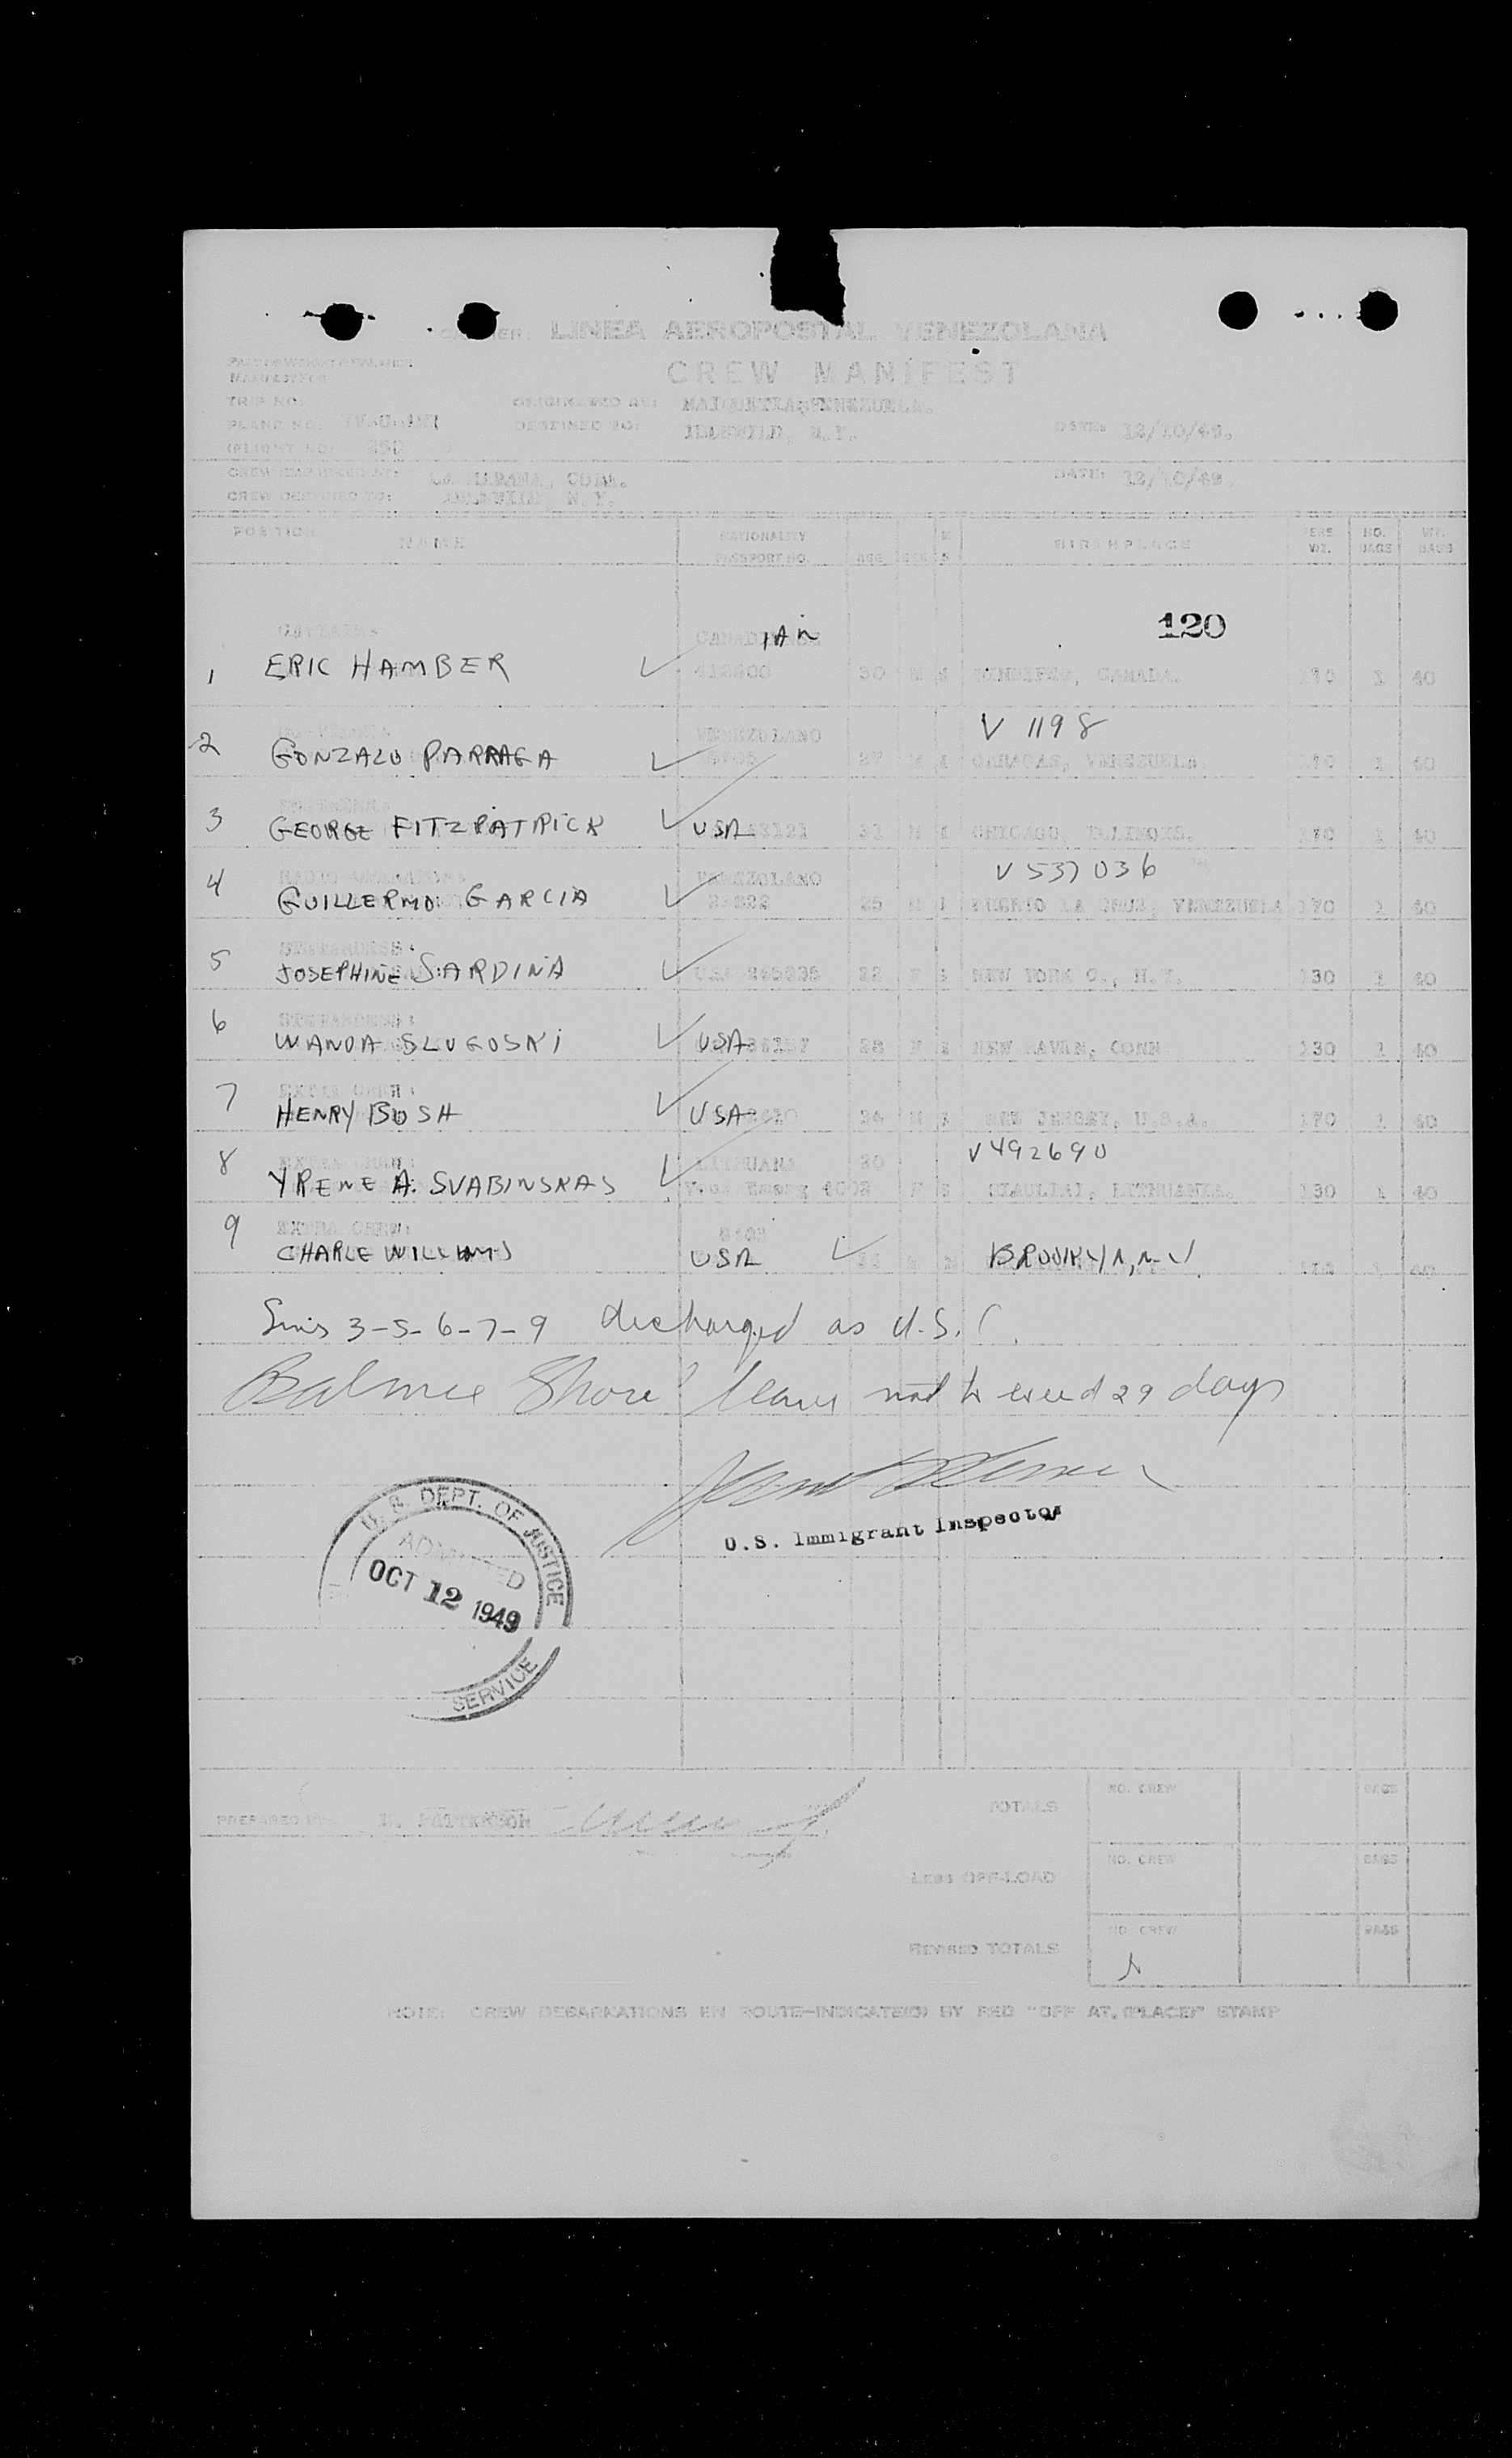 LINEA AEROPOSTAL VENEZOLANA
CREW MANIFEST
TRIP NO:
ORIGINATED AT: MAIQUETIA, VENEZUELA.
PLANE NO.
DESTINED TO: IDLEWILD, N.Y.
DATE: 12/10/49.
FLIGHT NO:
CREW EMBARKED AT: LA HABANA, CUBA.
DATE: 12/10/49.
CREW DESTINED TO: N.Y.
POSITION NAME NATIONALITY PASSPORT NO. AGE SEX M S BIRTHPLACE PERS WT. NO. BAGS WT. BAGS
120
CAPTAIN: IAN
1 ERIC HAMBER ✓ 30 M CANADA. 170 1 40
VENEZOLANO V 1198
2 GONZALO PARRAGA ✓ 27 M CARACAS, VENEZUELA 170 1 40
3 GEORGE FITZPATRICK ✓ USA M CHICAGO, ILLINOIS. 170 1 40
RADIO OPERATOR: VENEZOLANO V 537036
4 GUILLERMO GARCIA ✓ 25 M PUERTO LA CRUZ, VENEZUELA 170 1 40
STEWARDESS:
5 JOSEPHINE SARDINA ✓ USA F NEW YORK C., N.Y. 130 1 40
STEWARDESS:
6 WANDA SLUGOSKI ✓ USA 28 F NEW HAVEN, CONN 130 1 40
EXTRA CREW:
7 HENRY BUSH ✓ USA M NEW JERSEY, U.S.A. 170 1 40
EXTRA CREW: LITHUANA 20 V492690
8 YRENE A. SVABINSKAS ✓ F S SIAULIAI, LITHUANIA. 130 1 40
EXTRA CREW:
9 CHARLE WILLIAMS USA ✓ BROOKLYN, N-Y 1 40
3-5-6-7-9 discharged as U.S.C.
Balance Shore leave not to exceed 29 days
U.S. Immigrant Inspector
U.S. DEPT. OF JUSTICE
ADMITTED
OCT 12 1949
SERVICE
PREPARED BY: PATTERSON
TOTALS NO. CREW BAGS
LESS OFF-LOAD NO. CREW BAGS
REVISED TOTALS NO. CREW BAGS
NOTE: CREW DEBARKATIONS EN ROUTE-INDICATE(D) BY RED "OFF AT, (PLACE)" STAMP